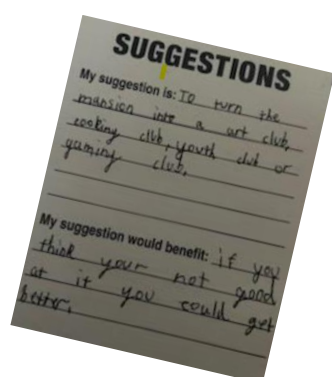 SUGGESTIONS
My suggestion is: To turn the
mansion into a art club,
cooking club, youth club or
gaming club.
My suggestion would benefit: if you
think your not good
at it you could get
better.